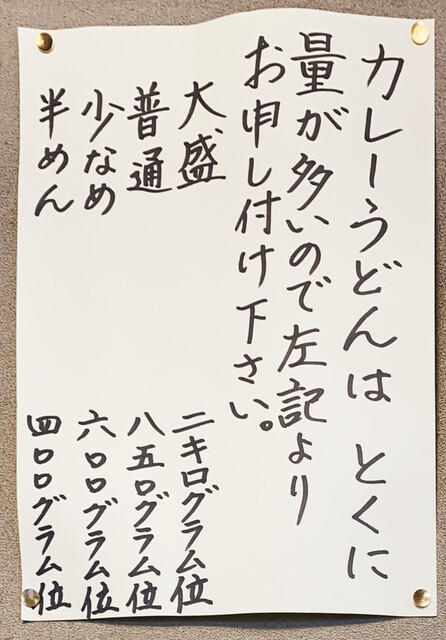 カレーうどんは とくに
量が多いので左記より
お申し付け下さい。
大盛 二キログラム位
普通 八五〇グラム位
少なめ 六〇〇グラム位
半めん 四〇〇グラム位